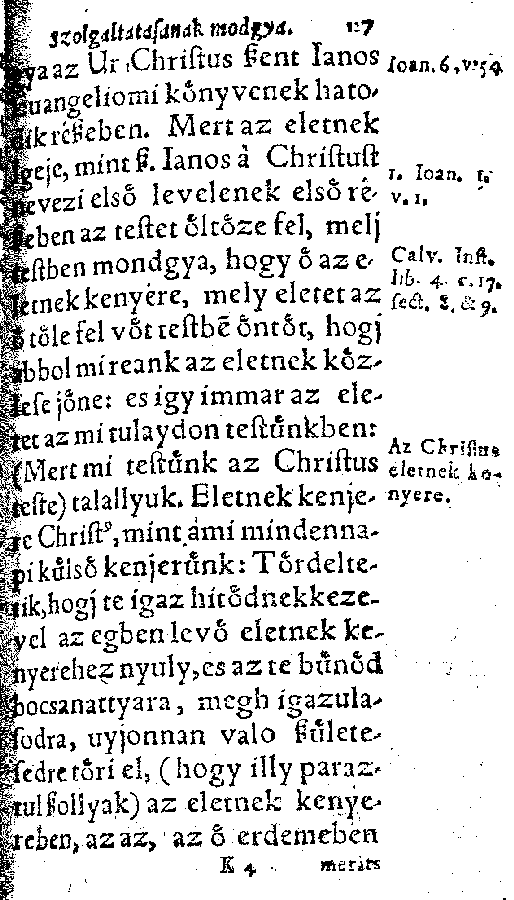 Szolgaltatasanak modgya. 127
ya az Ur Christus ſzent Ianos
Euangeliomi ko̊nyvenek hato-
dik réſzeben. Mert az eletnek
Igeje, mint ſz. Ianos à Christuſt
nevezi elso̊ levelenek elso̊ rê-
ſzeben az teſtet o̊lto̊ze fel, melj
teſtben mondgya, hogy o̊ az e-
letnek kenyére, mely eletet az
o̊ to̊le fel vo̊t teſtbē o̊nto̊t, hogj
abbol mi reank az eletnek ko̊z-
leſe jo̊ne: es igy immar az ele-
tet az mi tulaydon teſtůnkben:
(Mert mi teſtůnk az Chriſtus
teſte) talallyuk. Eletnek kenje-
re Chriſtꝰ, mint ámi mindenna-
pi kůlſo̊ kenjerůnk: To̊rdelte-
tik, hogj te igaz hito̊dnek keze-
vel az egben levo̊ eletnek ke-
nyerehez nyuly, es az te bůno̊d
bocsanattyara, megh igazula-
ſodra, uyjonnan valo ſzůlete-
ſedre to̊ri el, (hogy illy paraz-
tul ſzollyak) az eletnek kenye-
reben, az az, az o̊ erdemeben
K 4 merits
Ioan. 6, v. 54
1. Ioan. 1.
v. 1.
Calv. Inſt.
lib. 4. c. 17.
ſect. 8. & 9.
Az Chriſtus
eletnek ke-
nyere.